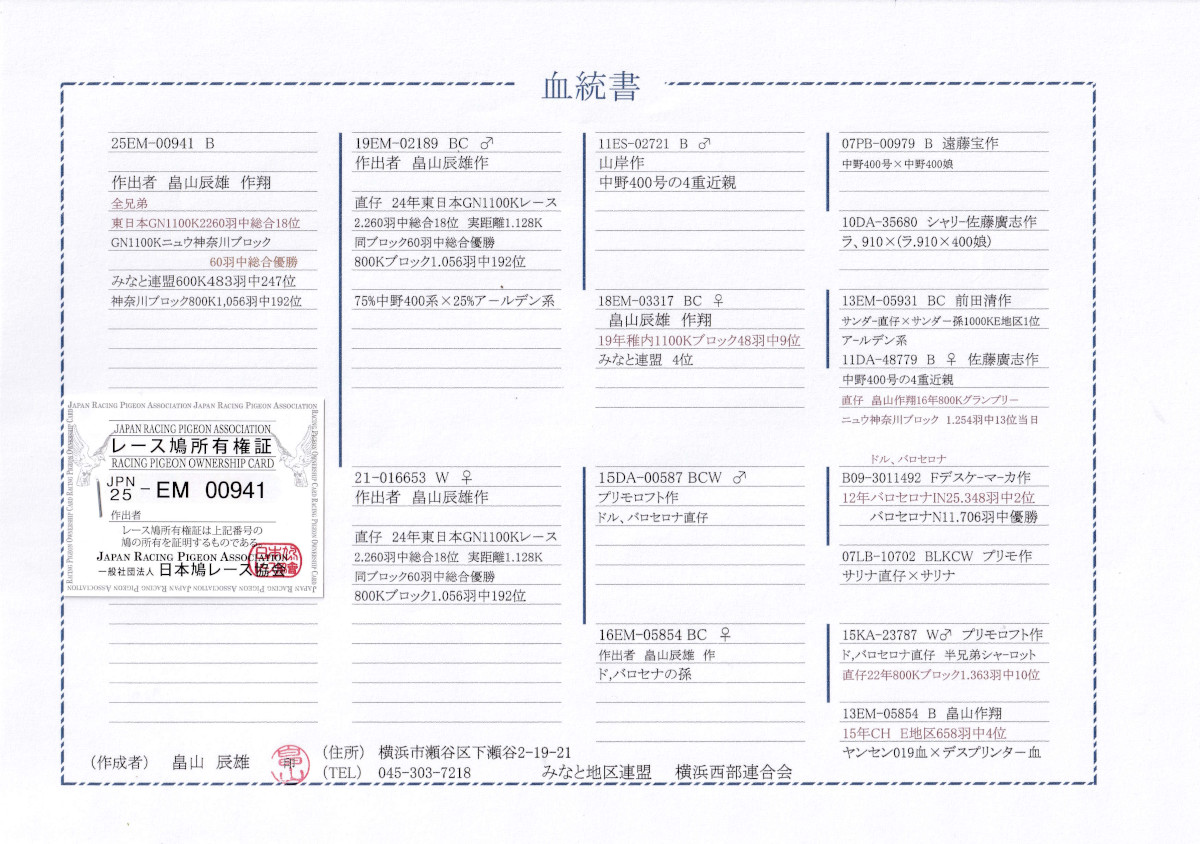 血統書
25EM-00941 B
作出者 畠山辰雄 作翔
全兄弟
東日本GN1100K2260羽中総合18位
GN1100Kニュウ神奈川ブロック
60羽中総合優勝
みなと連盟600K483羽中247位
神奈川ブロック800K1,056羽中192位
JAPAN RACING PIGEON ASSOCIATION JAPAN RACING PIGEON ASSOCIATION
JAPAN RACING PIGEON ASSOCIATION
レース鳩所有権証
RACING PIGEON OWNERSHIP CARD
JPN
25 - EM 00941
作出者
レース鳩所有権証は上記番号の
鳩の所有を証明するものである
JAPAN RACING PIGEON ASSOCIATION
一般社団法人 日本鳩レース協会
JAPAN RACING PIGEON ASSOCIATION JAPAN RACING PIGEON ASSOCIATION
RACING PIGEON OWNERSHIP CARD RACING PIGEON OWNERSHIP CARD
19EM-02189 BC ♂
作出者 畠山辰雄作
直仔 24年東日本GN1100Kレース
2.260羽中総合18位 実距離1.128K
同ブロック60羽中総合優勝
800Kブロック1.056羽中192位
75%中野400系×25%アールデン系
21-016653 W ♀
作出者 畠山辰雄作
直仔 24年東日本GN1100Kレース
2.260羽中総合18位 実距離1.128K
同ブロック60羽中総合優勝
800Kブロック1.056羽中192位
11ES-02721 B ♂
山岸作
中野400号の4重近親
18EM-03317 BC ♀
畠山辰雄 作翔
19年稚内1100Kブロック48羽中9位
みなと連盟 4位
15DA-00587 BCW ♂
プリモロフト作
ドル、バロセロナ直仔
16EM-05854 BC ♀
作出者 畠山辰雄 作
ド,バロセナの孫
07PB-00979 B 遠藤宝作
中野400号×中野400娘
10DA-35680 シャリー佐藤廣志作
ラ、910×(ラ.910×400娘)
13EM-05931 BC 前田清作
サンダー直仔×サンダー孫1000KE地区1位
アールデン系
11DA-48779 B ♀ 佐藤廣志作
中野400号の4重近親
直仔 畠山作翔16年800Kグランプリー
ニュウ神奈川ブロック 1.254羽中13位当日
ドル、バロセロナ
B09-3011492 Fデスケーマーカ作
12年バロセロナIN25.348羽中2位
バロセロナN11.706羽中優勝
07LB-10702 BLKCW プリモ作
サリナ直仔×サリナ
15KA-23787 W♂ プリモロフト作
ド,バロセロナ直仔 半兄弟シャーロット
直仔22年800Kブロック1.363羽中10位
13EM-05854 B 畠山作翔
15年CH E地区658羽中4位
ヤンセン019血×デスプリンター血
(作成者) 畠山 辰雄 印
(住所) 横浜市瀬谷区下瀬谷2-19-21
(TEL) 045-303-7218 みなと地区連盟 横浜西部連合会